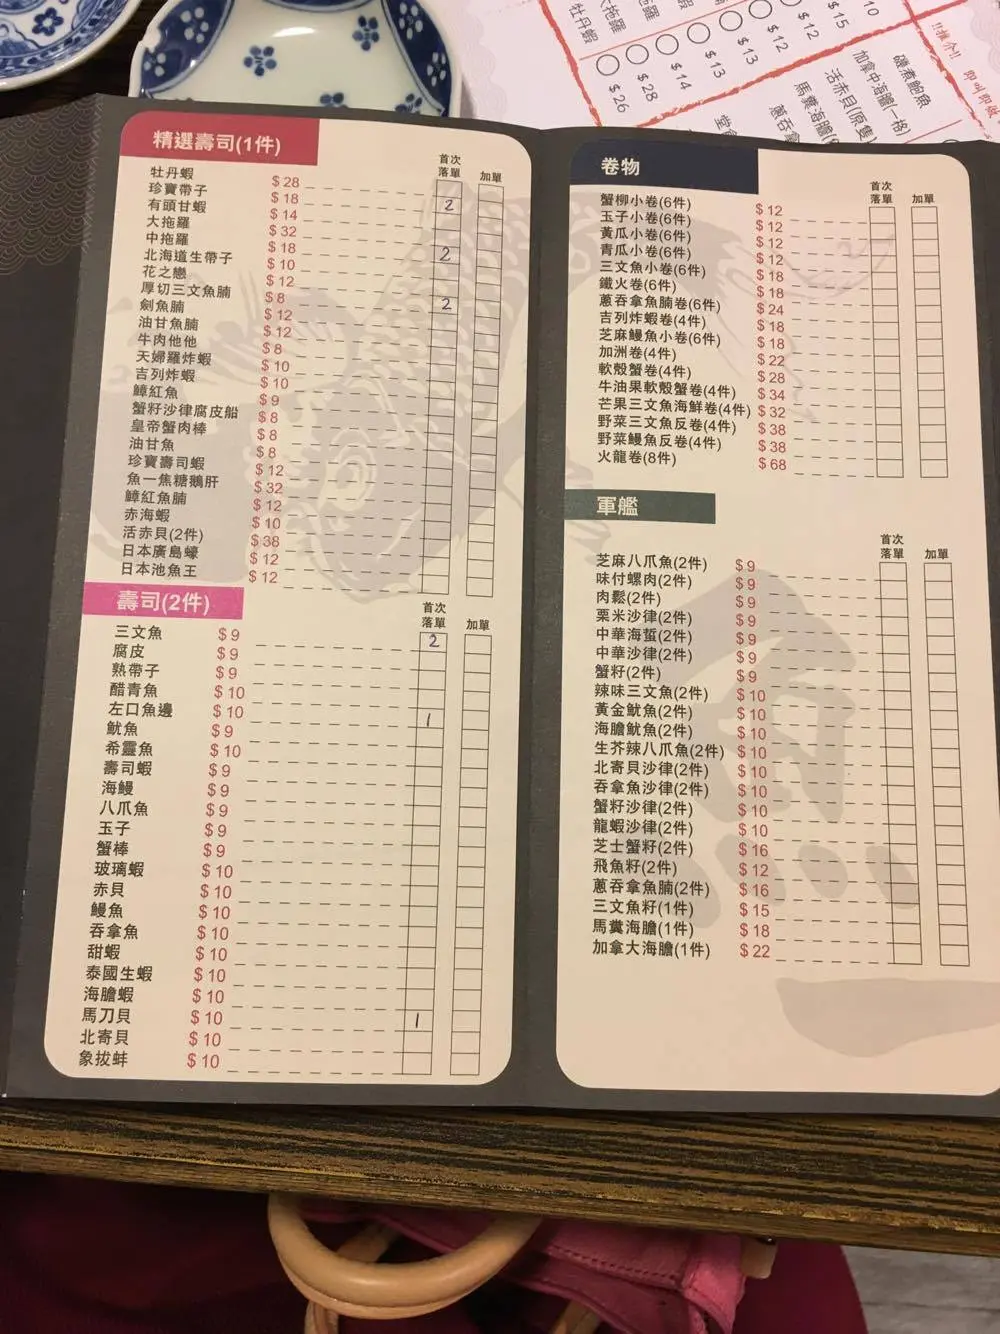 大拖羅
牡丹蝦
$12
$15
$10
$12
$13
$13
$14
$28
$26
!!推介!! 即叫即做
磯煮鮑魚
加拿中海膽(一格)
活赤貝(原隻)
馬糞海膽(
蔥吞拿
精選壽司(1件)
首次落單 加單
牡丹蝦 $28
珍寶帶子 $18 2
有頭甘蝦 $14
大拖羅 $32
中拖羅 $18 2
北海道生帶子 $10
花之戀 $12
厚切三文魚腩 $8 2
劍魚腩 $12
油甘魚腩 $12
牛肉他他 $8
天婦羅炸蝦 $10
吉列炸蝦 $10
鱆紅魚 $9
蟹籽沙律腐皮船 $8
皇帝蟹肉棒 $8
油甘魚 $8
珍寶壽司蝦 $12
魚一焦糖鵝肝 $32
鱆紅魚腩 $12
赤海蝦 $10
活赤貝(2件) $38
日本廣島蠔 $12
日本池魚王 $12
壽司(2件)
首次落單 加單
三文魚 $9 2
腐皮 $9
熟帶子 $9
醋青魚 $10
左口魚邊 $10 1
魷魚 $9
希靈魚 $10
壽司蝦 $9
海鰻 $9
八爪魚 $9
玉子 $9
蟹棒 $9
玻璃蝦 $10
赤貝 $10
鰻魚 $10
吞拿魚 $10
甜蝦 $10
泰國生蝦 $10
海膽蝦 $10
馬刀貝 $10 1
北寄貝 $10
象拔蚌 $10
卷物
首次落單 加單
蟹柳小卷(6件) $12
玉子小卷(6件) $12
黃瓜小卷(6件) $12
青瓜小卷(6件) $12
三文魚小卷(6件) $18
鐵火卷(6件) $18
蔥吞拿魚腩卷(6件) $24
吉列炸蝦卷(4件) $18
芝麻鰻魚小卷(6件) $18
加洲卷(4件) $22
軟殼蟹卷(4件) $28
牛油果軟殼蟹卷(4件) $34
芒果三文魚海鮮卷(4件) $32
野菜三文魚反卷(4件) $38
野菜鰻魚反卷(4件) $38
火龍卷(8件) $68
軍艦
首次落單 加單
芝麻八爪魚(2件) $9
味付螺肉(2件) $9
肉鬆(2件) $9
栗米沙律(2件) $9
中華海蜇(2件) $9
中華沙律(2件) $9
蟹籽(2件) $9
辣味三文魚(2件) $10
黃金魷魚(2件) $10
海膽魷魚(2件) $10
生芥辣八爪魚(2件) $10
北寄貝沙律(2件) $10
吞拿魚沙律(2件) $10
蟹籽沙律(2件) $10
龍蝦沙律(2件) $10
芝士蟹籽(2件) $16
飛魚籽(2件) $12
蔥吞拿魚腩(2件) $16
三文魚籽(1件) $15
馬糞海膽(1件) $18
加拿大海膽(1件) $22